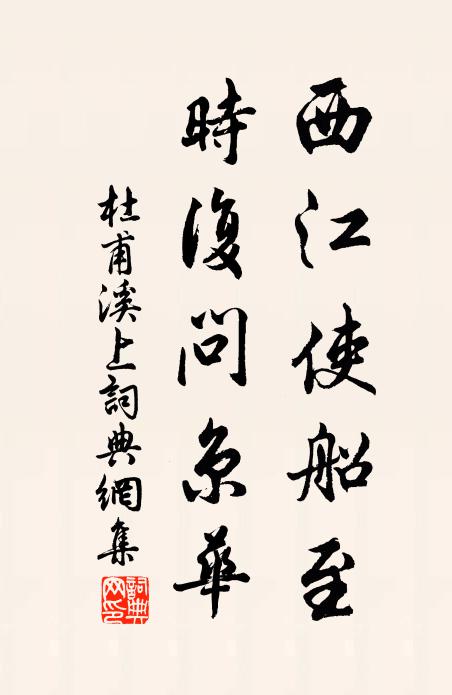 西江使船至
時復問京華
杜甫溪上詞典網集
詞典網印